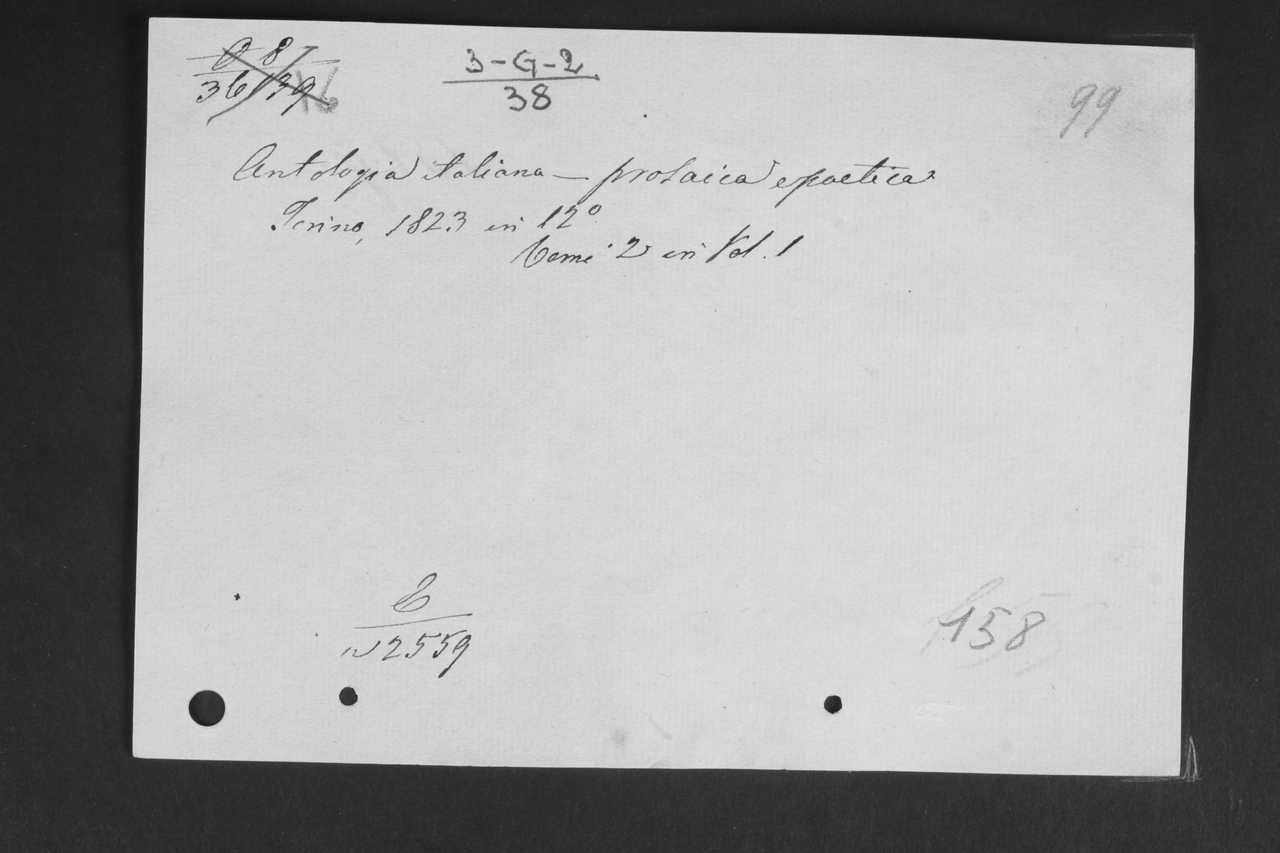 3-G-2
38
99
Antologia italiana — prosaica e poetica
Torino, 1823 in 12º
Tomi 2 in Vol. 1
2559
158